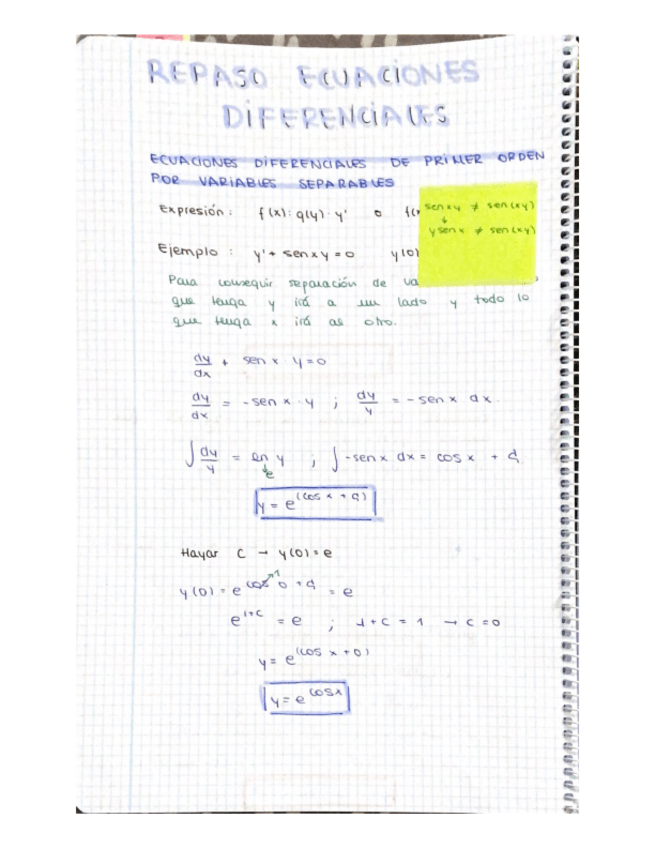 REPASO ECUACIONES
DIFERENCIALES
ECUACIONES DIFERENCIALES DE PRIMER ORDEN
POR VARIABLES SEPARABLES
Expresión: f(x) : g(y) · y' o f(
senxy ≠ sen(xy)
↓
y senx ≠ sen(xy)
Ejemplo: y' + senxy = 0 y(0)
Para conseguir separación de va
que tenga y irá a un lado y todo lo
que tenga x irá al otro.
dy/dx + sen x y = 0
dy/dx = -sen x · y ; dy/y = -sen x dx.
∫ dy/y = ln y ; ∫ -sen x dx = cos x + C
e
y = e^(cos x + C)
Hayar C → y(0) = e
y(0) = e^(cos 0 + C) = e
1
e^(1+C) = e ; 1 + C = 1 → C = 0
y = e^(cos x + 0)
y = e^cosx